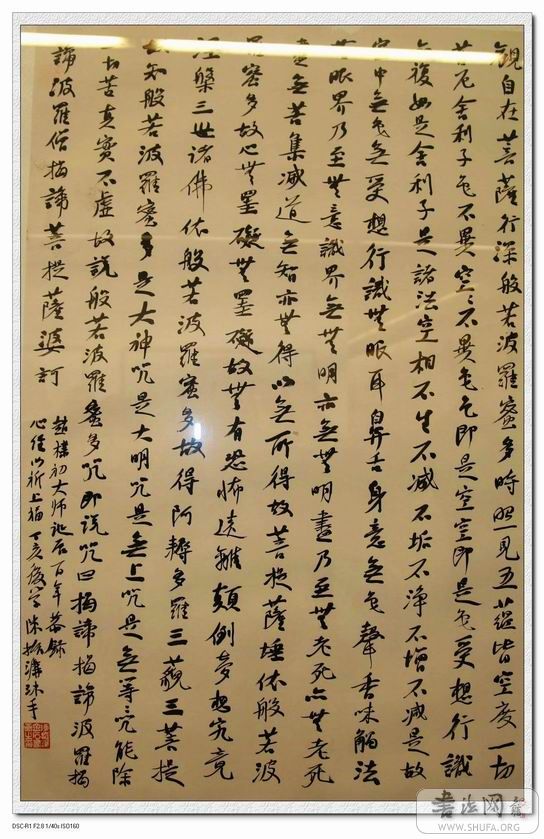 觀自在菩薩行深般若波羅蜜多時照見五蘊皆空度一切
苦厄舍利子色不異空〻不異色色即是空空即是色受想行識
亦復如是舍利子是諸法空相不生不滅不垢不淨不增不減是故
空中無色無受想行識無眼耳鼻舌身意無色聲香味觸法
無眼界乃至無意識界無無明亦無無明盡乃至無老死亦無老死
盡無苦集滅道無智亦無得以無所得故菩提薩埵依般若波
羅蜜多故心無罣礙無罣礙故無有恐怖遠離顛倒夢想究竟
涅槃三世諸佛依般若波羅蜜多故得阿耨多羅三藐三菩提
故知般若波羅蜜多是大神咒是大明咒是無上咒是無等咒能除
一切苦真實不虛故說般若波羅蜜多咒即說咒曰揭諦揭諦波羅揭
諦波羅僧揭諦菩提薩婆訶
趙樸初大师誕辰百年恭錄
心經以祈上福丁亥陳振濂沐手
DSC-R1 F2.8 1/40s ISO160
书法网
WWW.SHUFA.ORG